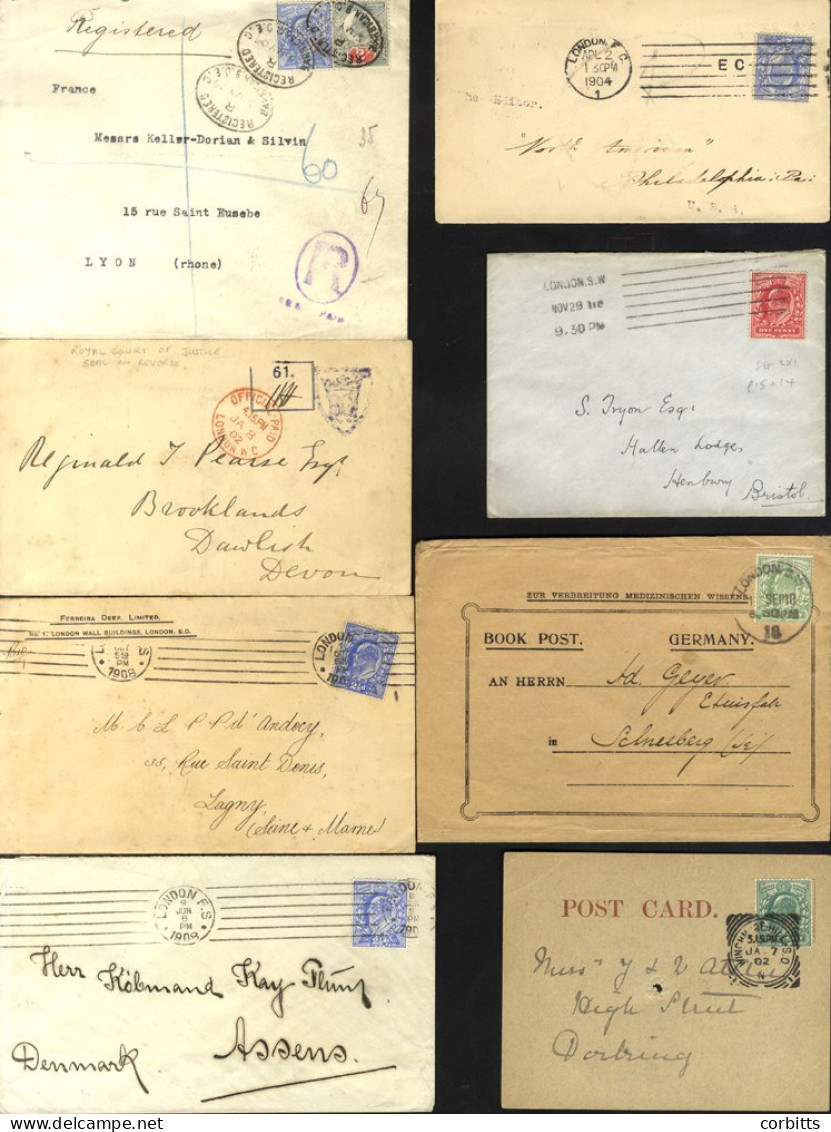 Registered
France
Messrs Keller-Dorian & Silvin
60
35
15 rue Saint Eusebe
LYON (rhone)
R
REGISTERED
LONDON. E.C
APL 2
1 30PM
1904
1
EC
The Editor.
"North American"
Philadelphia: Pa:
U.S.A.
LONDON. S.W
NOV 29
9.30 PM
ONE PENNY
S. Tryon Esqr
Hallen Lodge
Henbury
Bristol.
ROYAL COURT OF JUSTICE
SEAL ON REVERSE
61.
OFFICIAL PAID
4.15PM
JA 8
02
LONDON W.C
Reginald T Pearse Esqr
Brooklands
Dawlish
Devon
FERREIRA DEEP, LIMITED,
No. 1, LONDON WALL BUILDINGS, LONDON, E.C.
PM
1908
LONDON
Rue Saint Denis,
Lagny,
(Seine & Marne)
ZUR VERBREITUNG MEDIZINISCHEN WISSENS
LONDON
SEP 10
BOOK POST. GERMANY.
AN HERRN Ad. Geyer
in Schneeberg
LONDON F.S
9
JUN
6
PM
1908
Herr Kóbmand Kay
Assens.
Denmark
POST CARD.
WINCHMORE HILL S.O
5.15PM
JA 7
02
N
High Street
Dorking
corbitts